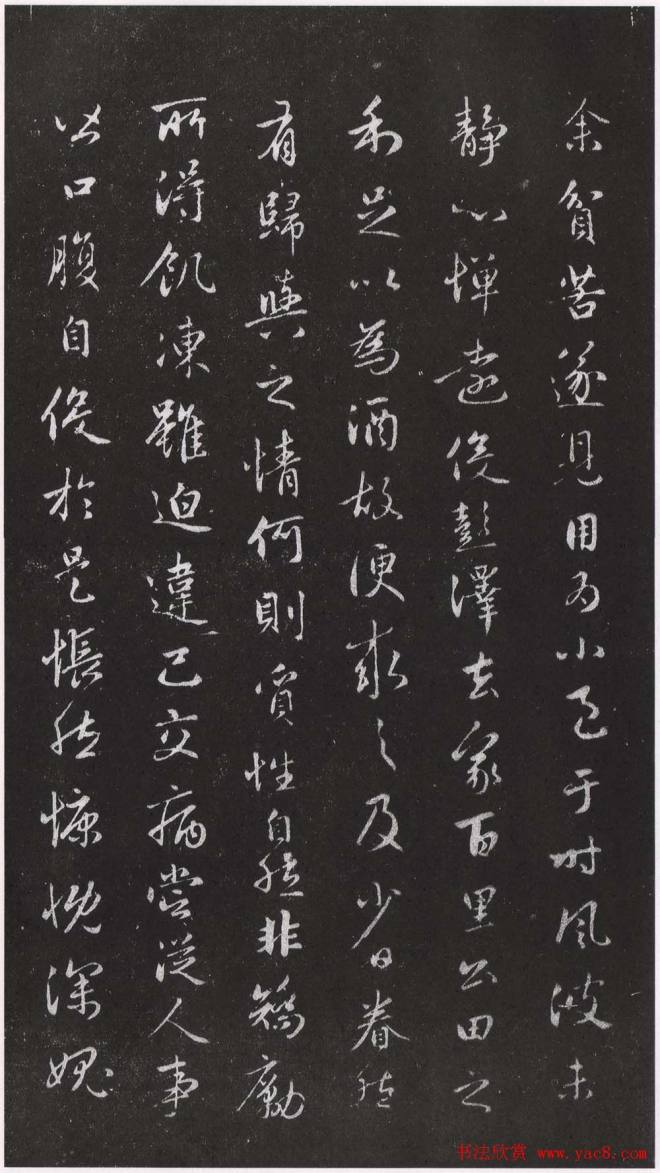 余貧苦遂見用為小邑于時風波未
靜心憚遠役彭澤去家百里公田之
利足以為酒故便求之及少日眷然
有歸與之情何則質性自然非矯勵
所得飢凍雖迫違己交病嘗從人事
皆口腹自役於是悵然慷慨深媿
书法欣赏 www.yac8.com